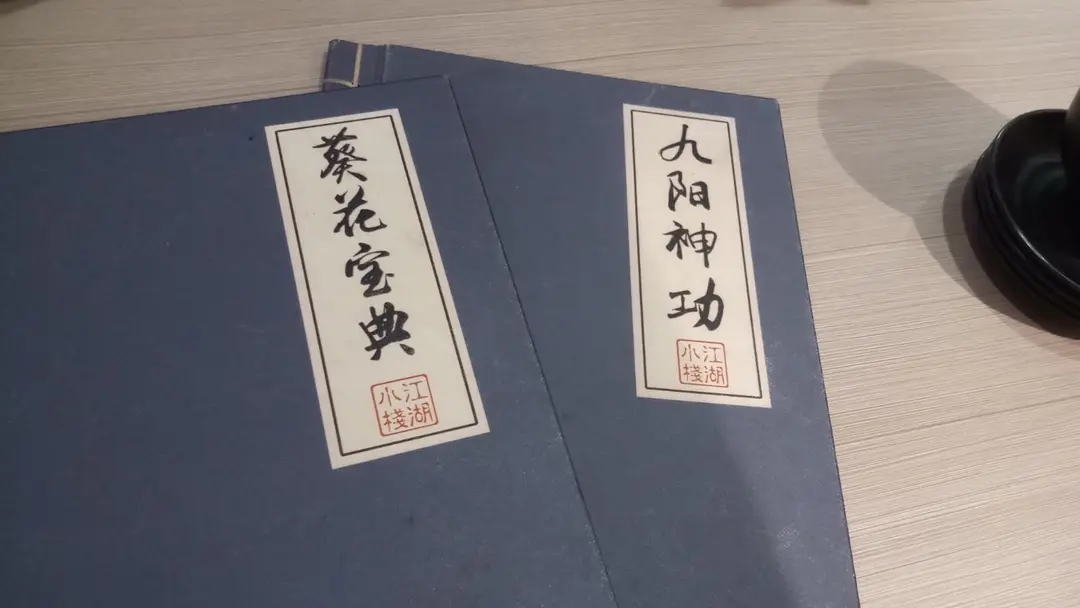 葵花宝典
江湖
小栈
九阳神功
江湖
小栈